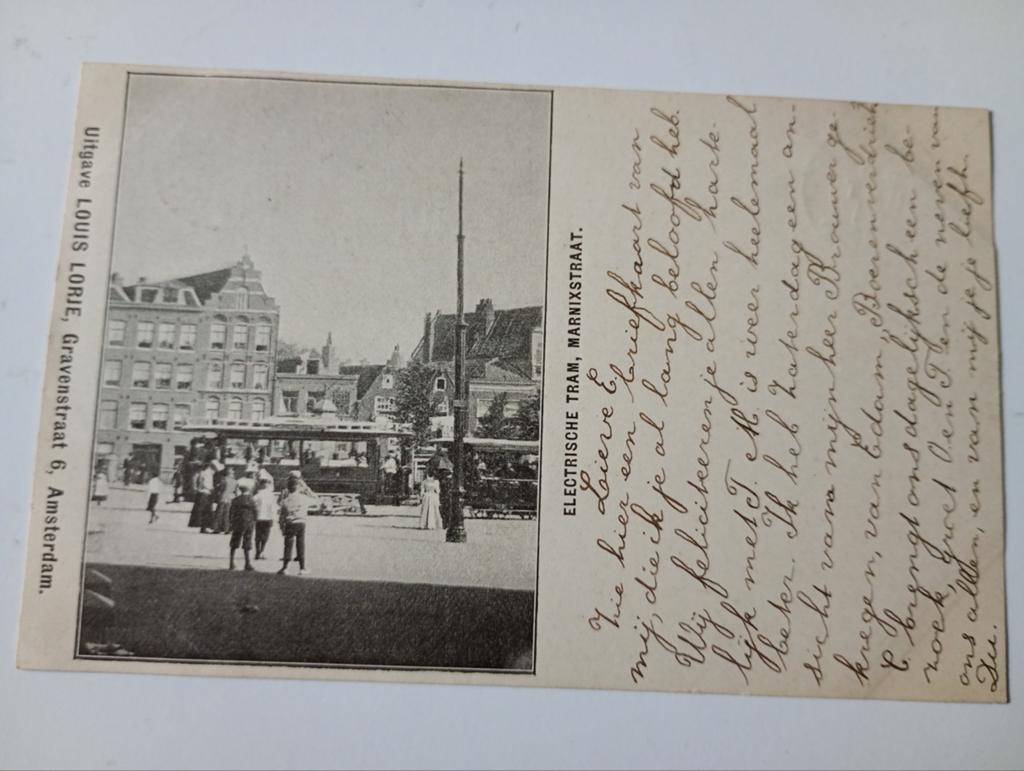 Uitgave LOUIS LORJE, Gravenstraat 6, Amsterdam.
ELECTRISCHE TRAM, MARNIXSTRAAT.
Lieve E.
Zie hier een briefkaart van
mij, die ik je al lang beloofd heb.
Wij feliciteeren je allen harte-
lijk met T. M. is weer heelemaal
beter. Ik heb Zaterdag een an-
sicht van mijnheer Brouwer ge-
kregen, van Edam, Boerenverdriet
C. brengt ons dagelijksch een be-
zoek, groet Oen T en de neven van
ons allen, en van mij je je liefh.
Du.